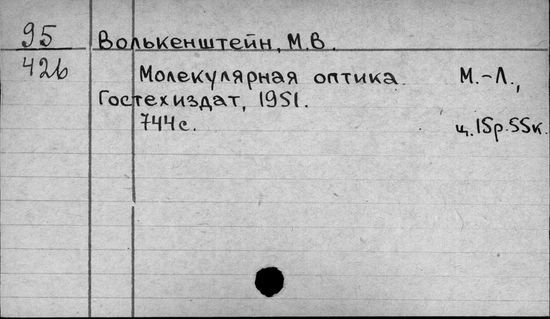 95 Волькенштейн, М.В.
426 Молекулярная оптика М.-Л.,
Гостехиздат, 1951.
744с. ц.15р.55к.